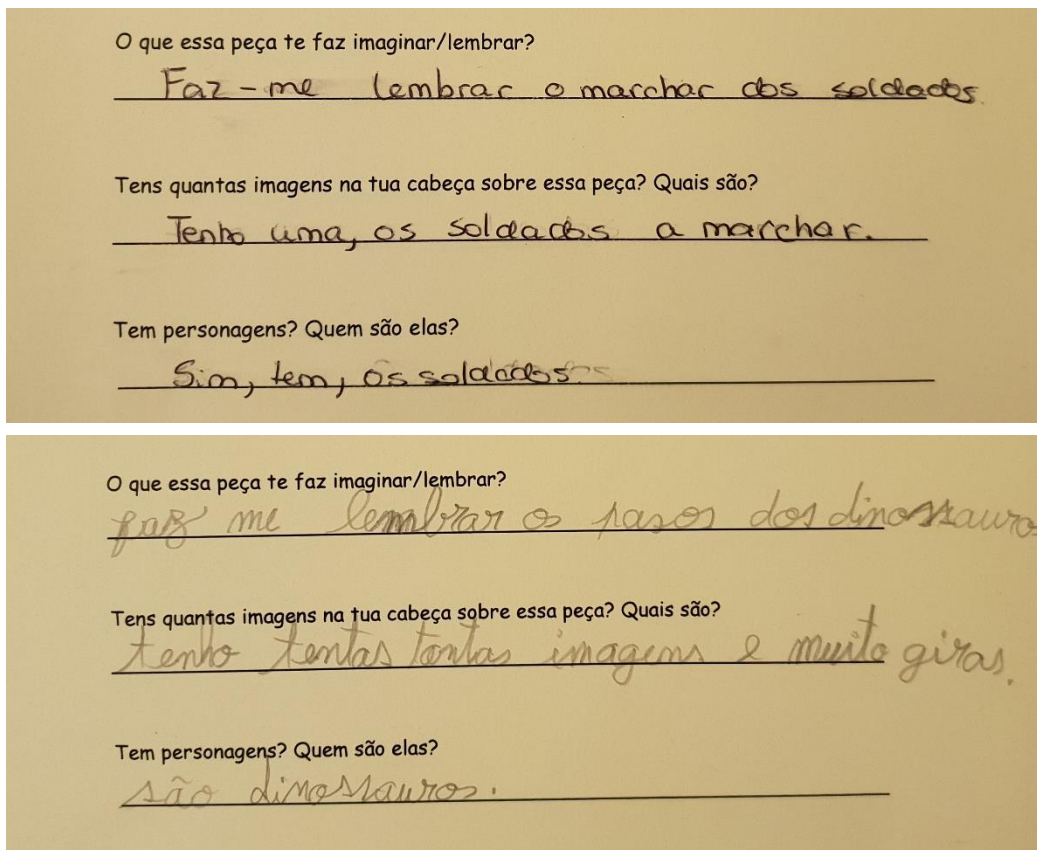 O que essa peça te faz imaginar/lembrar?
Faz-me lembrar o marchar dos soldados
Tens quantas imagens na tua cabeça sobre essa peça? Quais são?
Tenho uma, os soldados a marchar.
Tem personagens? Quem são elas?
Sim, tem, os soldados.
O que essa peça te faz imaginar/lembrar?
faz me lembrar os pasos dos dinossauro
Tens quantas imagens na tua cabeça sobre essa peça? Quais são?
tenho tentas tontas imagens e muito giras.
Tem personagens? Quem são elas?
são dinossauros.